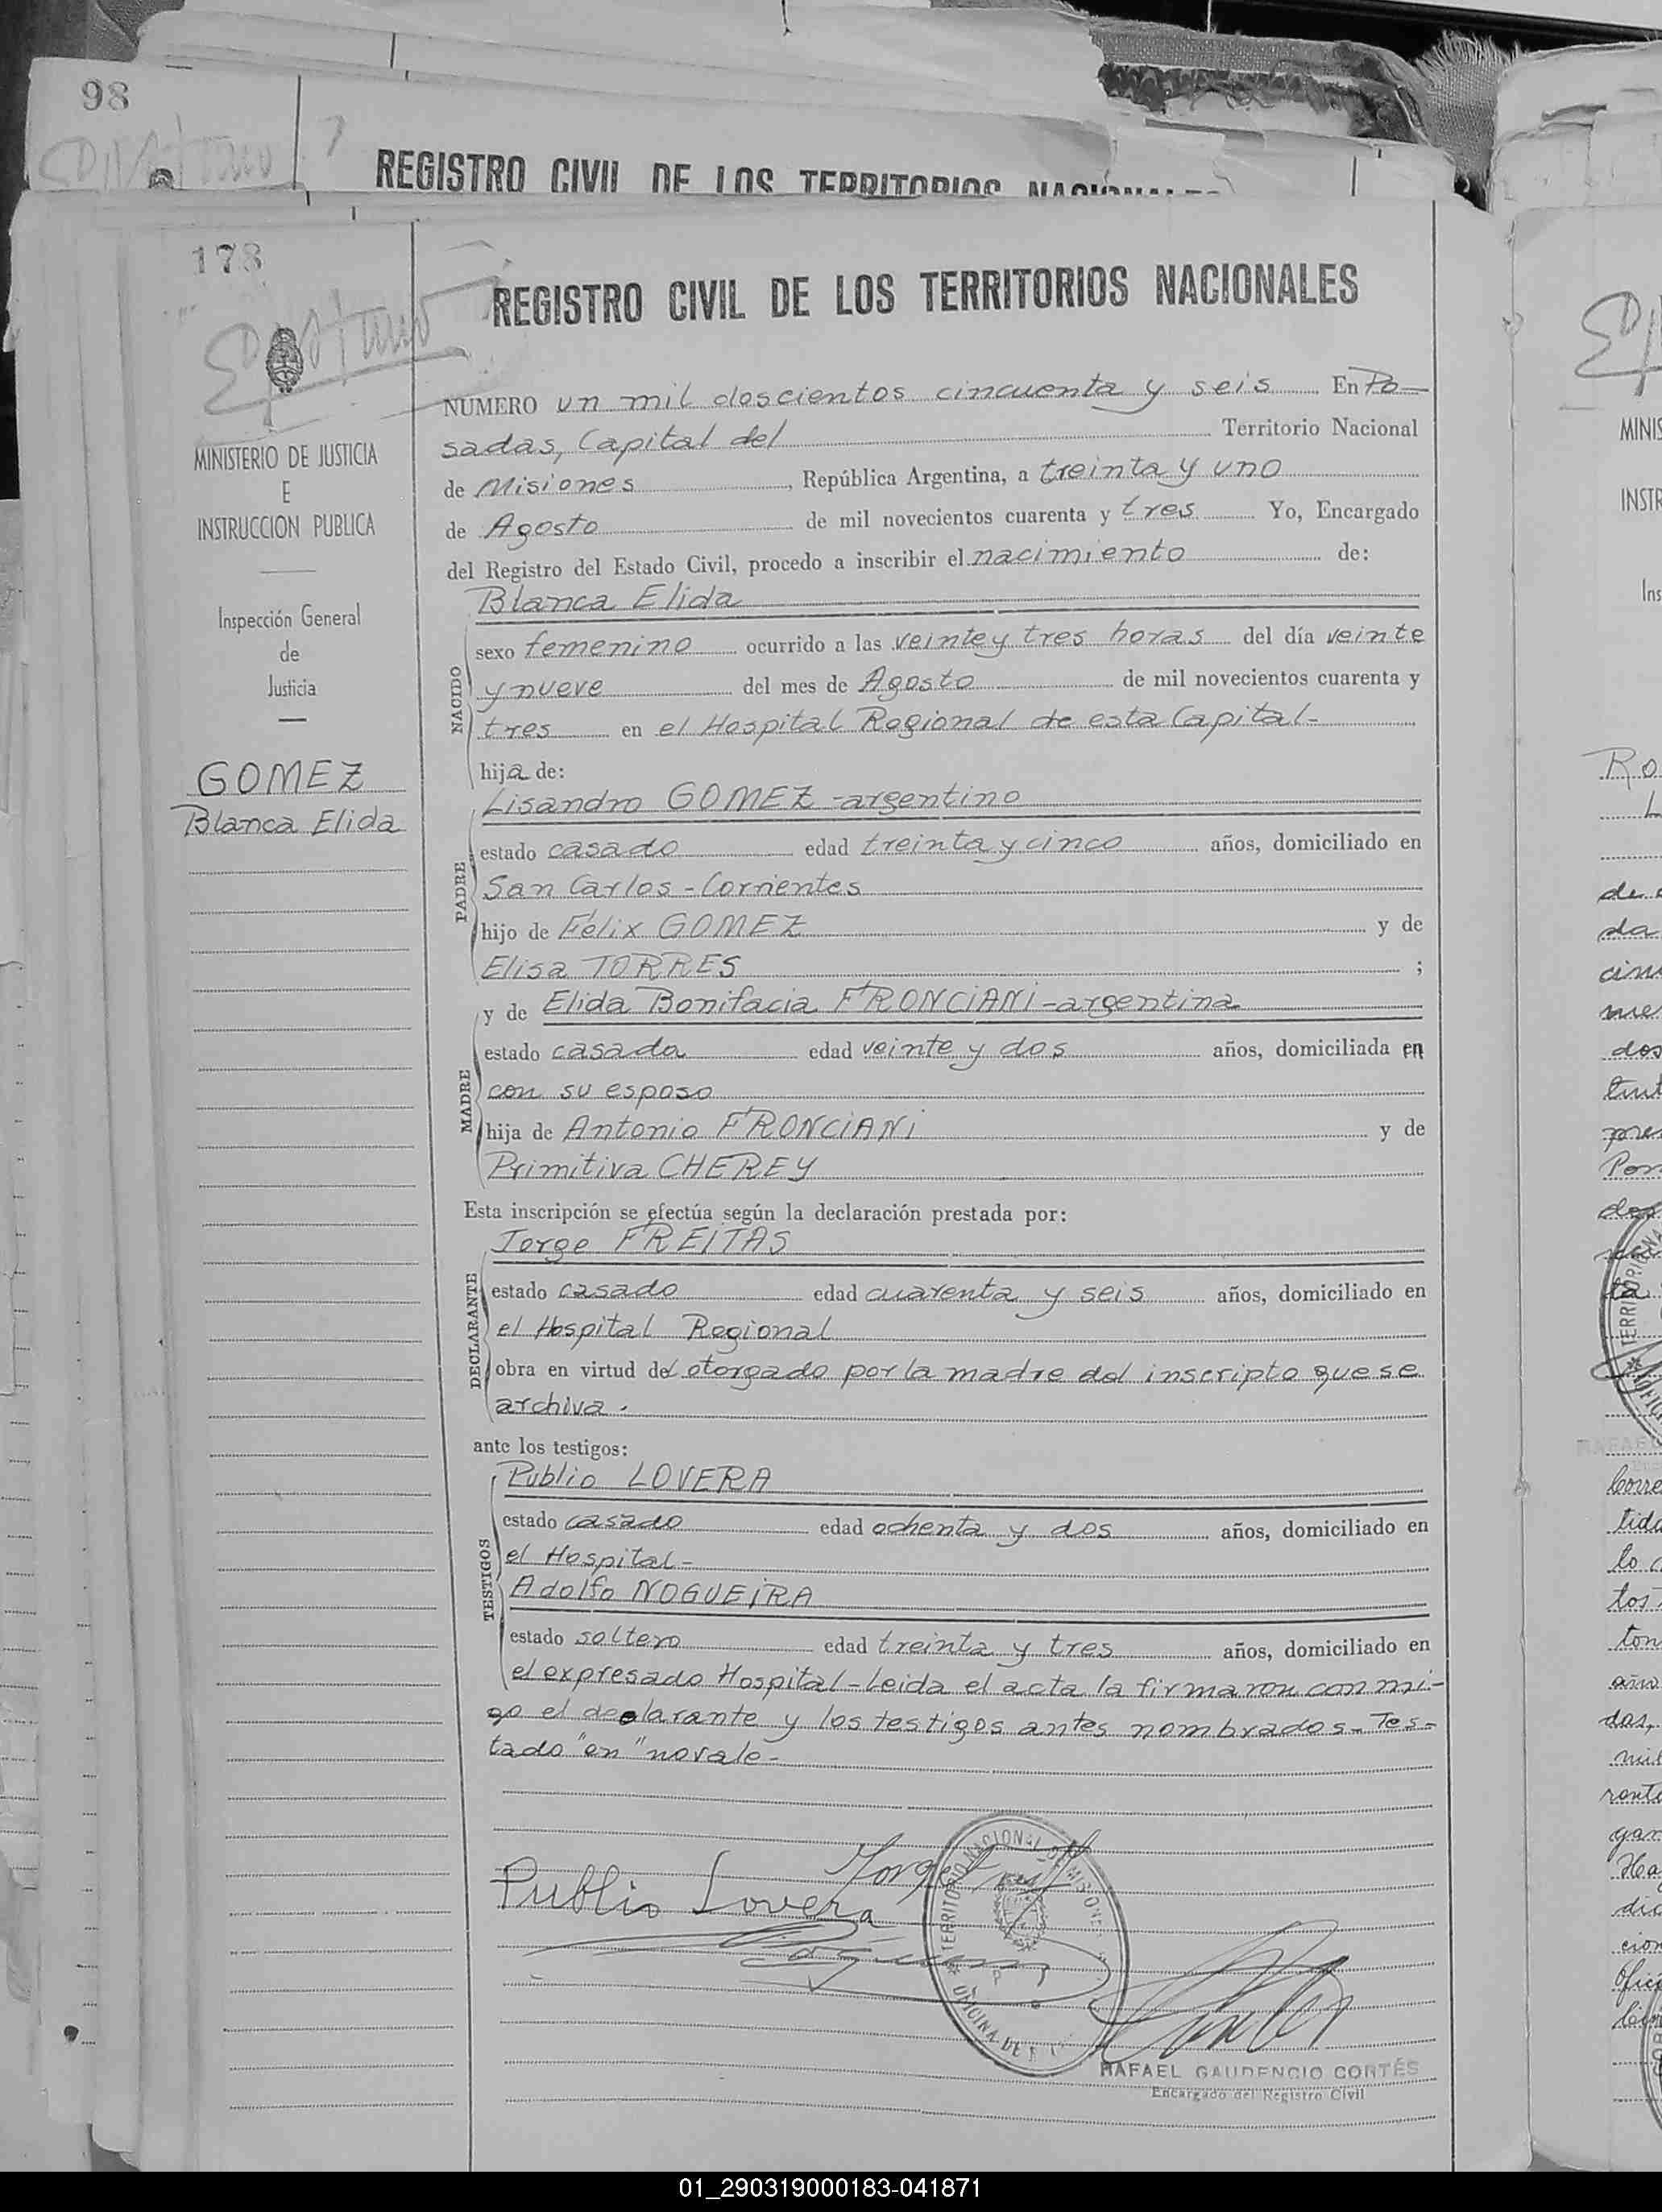 98
REGISTRO CIVIL DE LOS TERRITORIOS NACIONALES
178
REGISTRO CIVIL DE LOS TERRITORIOS NACIONALES
MINISTERIO DE JUSTICIA
E
INSTRUCCION PUBLICA
Inspección General
de
Justicia
GOMEZ
Blanca Elida
NUMERO un mil doscientos cincuenta y seis En Po-
sadas, Capital del Territorio Nacional
de Misiones, República Argentina, a treinta y uno
de Agosto de mil novecientos cuarenta y tres Yo, Encargado
del Registro del Estado Civil, procedo a inscribir el nacimiento de:
Blanca Elida
NACIDO
sexo femenino ocurrido a las veinte y tres horas del día veinte
y nueve del mes de Agosto de mil novecientos cuarenta y
tres en el Hospital Regional de esta Capital-
hija de:
Lisandro GOMEZ-argentino
PADRE
estado casado edad treinta y cinco años, domiciliado en
San Carlos-Corrientes
hijo de Félix GOMEZ y de
Elisa TORRES ;
y de Elida Bonifacia FRONCIANI-argentina
MADRE
estado casada edad veinte y dos años, domiciliada en
con su esposo
hija de Antonio FRONCIANI y de
Primitiva CHEREY
Esta inscripción se efectúa según la declaración prestada por:
Jorge FREITAS
DECLARANTE
estado casado edad cuarenta y seis años, domiciliado en
el Hospital Regional
obra en virtud del otorgado por la madre del inscripto que se
archiva.
ante los testigos:
Publio LOVERA
TESTIGOS
estado casado edad ochenta y dos años, domiciliado en
el Hospital-
Adolfo NOGUEIRA
estado soltero edad treinta y tres años, domiciliado en
el expresado Hospital-Leida el acta la firmaron con mi-
go el declarante y los testigos antes nombrados-Tes-
tado "en" no vale-
Publio Lovera
TERRITORIO NACIONAL DE MISIONES
OFICINA DE
RAFAEL GAUDENCIO CORTÉS
Encargado del Registro Civil
01_290319000183-041871